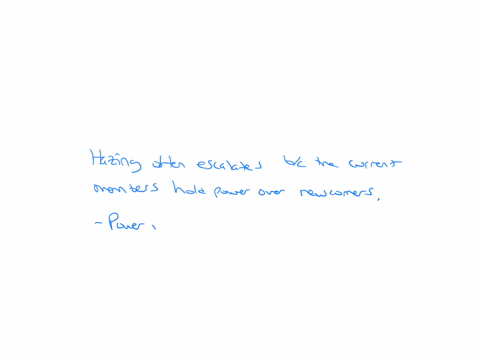 Hazing often escalates b/c the current
members hold power over newcomers.
- Power,